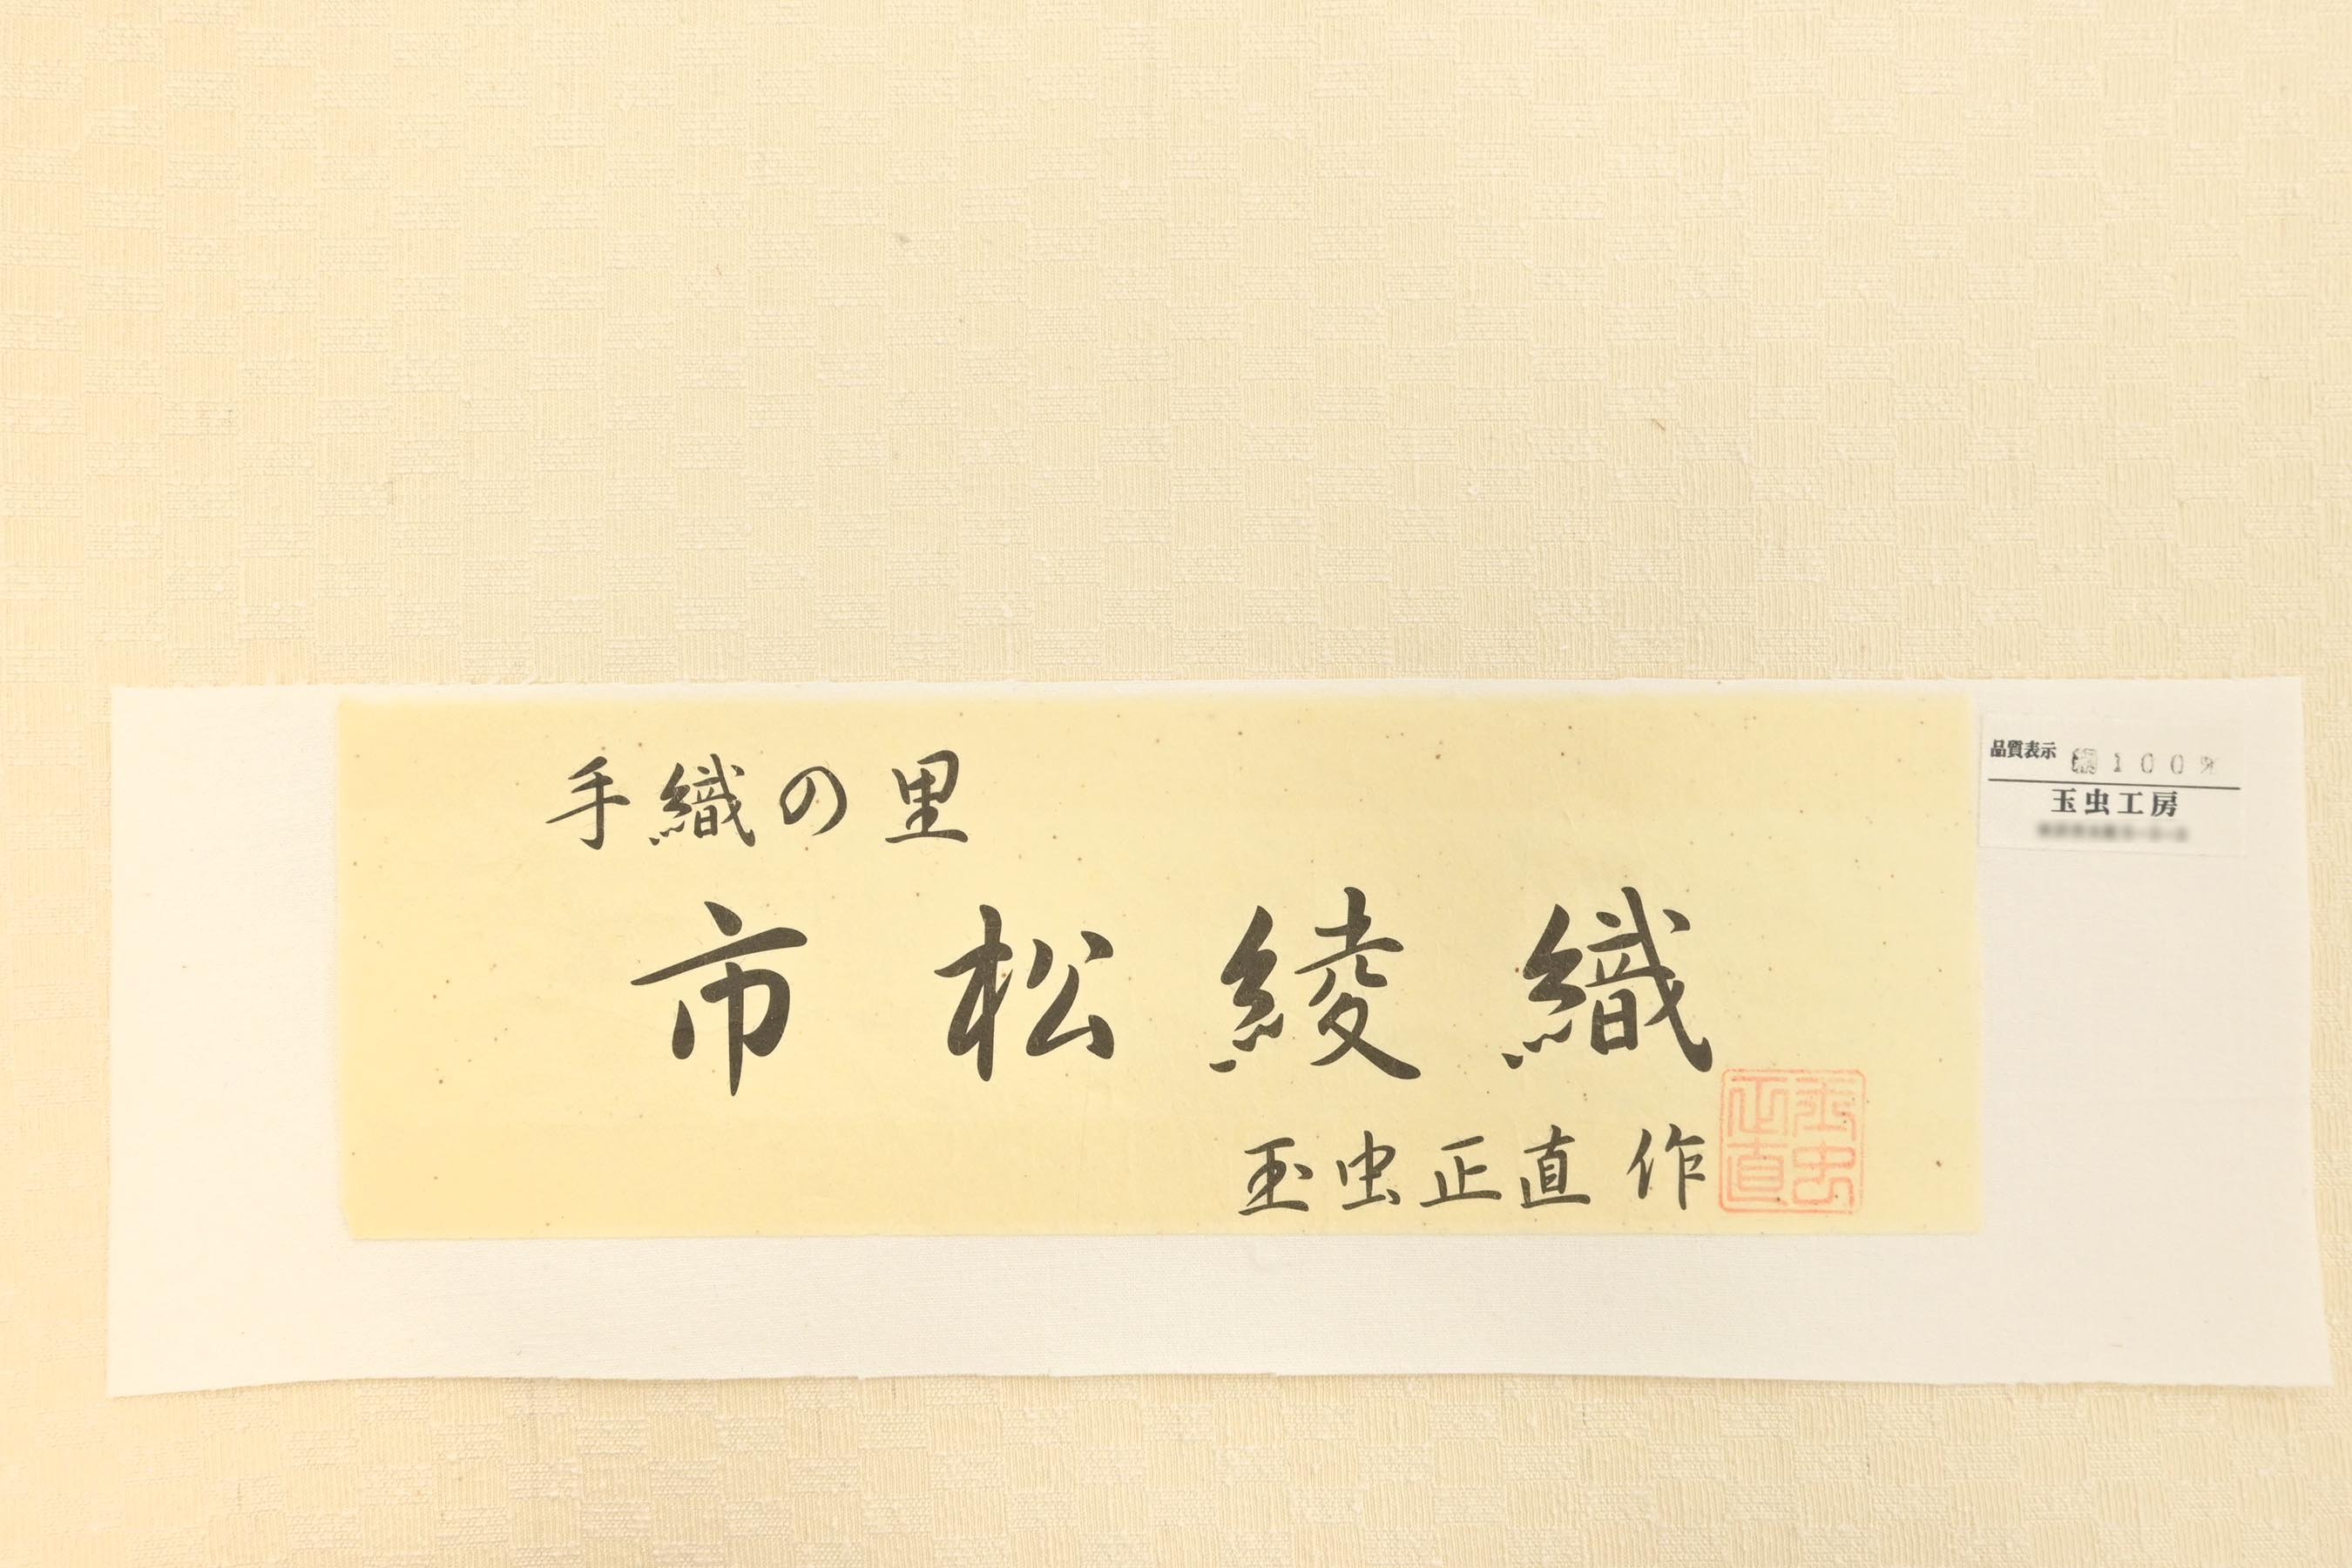 手織の里
市松綾織
玉虫正直 作
玉虫正直
品質表示 絹100%
玉虫工房